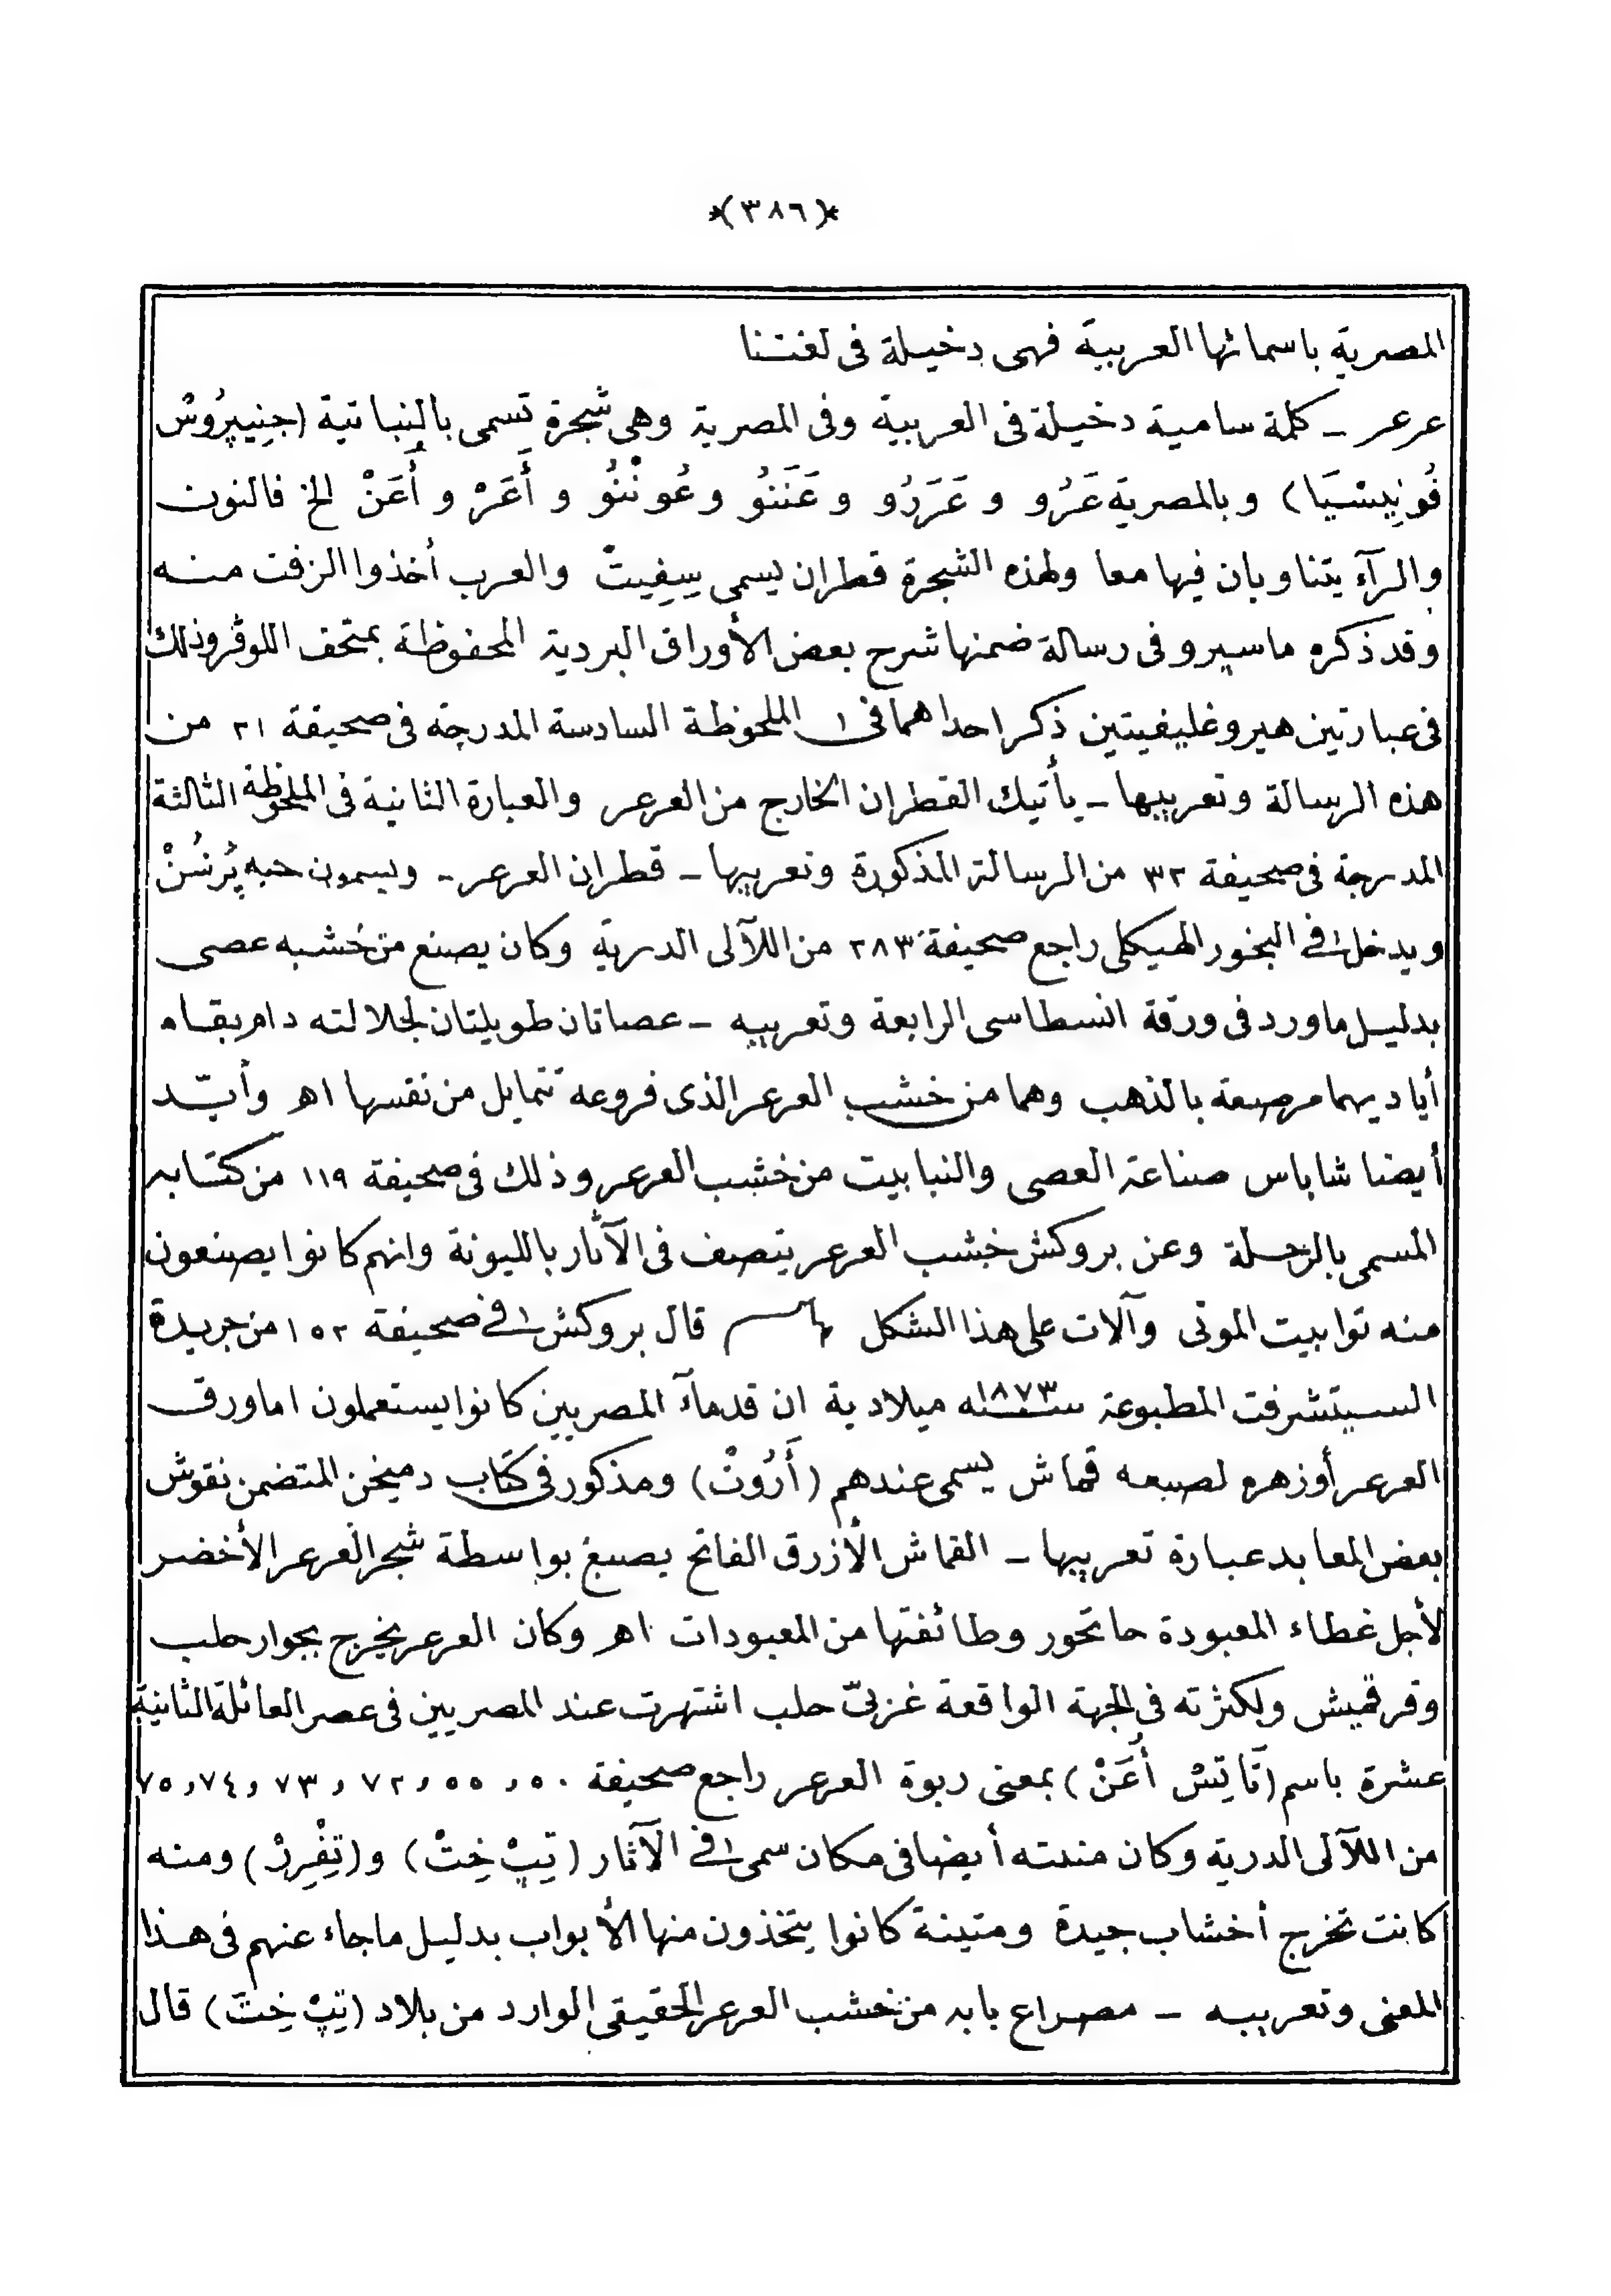 *(٣٨٦)*
المصرية باسمائها العربية فهى دخيلة فى لغتنا
عرعر ــ كلمة سامية دخيلة فى العربية وفى المصرية وهى شجرة تسمى بالنباتية (جِنِيپرُوسْ
فُونِيسْيَا) وبالمصرية عَرُو و عَرَرُو و عَنَنُو و عُونْنُو و أَعَرْ و أَعَنْ الخ فالنون
والرآء يتناوبان فيها معا ولهذه الشجرة قطران يسمى سِفِيتْ والعرب أخذوا الزفت منه
وقد ذكره ماسپرو فى رسالة ضمنها شرح بعض الأوراق البردية المحفوظة بمتحف اللوڤر وذلك
فى عبارتين هيروغليفيتين ذكر احداهما فى الملحوظة السادسة المدرجة فى صحيفة ٢١ من
هذه الرسالة وتعريبها ــ يأتيك القطران الخارج من العرعر والعبارة الثانية فى الملحوظة الثالثة
المدرجة فى صحيفة ٣٢ من الرسالة المذكورة وتعريبها ــ قطران العرعر ــ ويسمون حبه پُرشُنْ
ويدخل فى البخور الهيكلى راجع صحيفة ٢٨٣ من اللآلى الدرية وكان يصنع من خشبه عصى
بدليل ماورد فى ورقة انسطاسى الرابعة وتعريبه ــ عصاتان طويلتان لجلالته دام بقاه
أياديهما مرصعة بالذهب وهما من خشب العرعر الذى فروعه تتمايل من نفسها اه وأيّد
أيضا شاباس صناعة العصى والنبابيت من خشب العرعر وذلك فى صحيفة ١١٩ من كتابه
المسمى بالرحلة وعن بروكش خشب العرعر يتصف فى الآثار بالليونة وانهم كانوا يصنعون
منه توابيت الموتى وآلات على هذا الشكل قال بروكش فى صحيفة ١٥٢ من جريدة
السيتشرفت المطبوعة سنة ١٨٧٣ ميلادية ان قدمآء المصريين كانوا يستعملون اماورق
العرعر أوزهره لصبعه قماش يسمى عندهم (أَرُوتْ) ومذكور فى كتاب دميخن المتضمن نقوش
بعض المعابد عبارة تعريبها ــ القماش الأزرق الفاتح يصبغ بواسطة شجر العرعر الأخضر
لأجل غطاء المعبودة حاتحور وطائفتها من المعبودات اهـ وكان العرعر يخرج بجوار حلب
وقرقميش ولكثرته فى الجهة الواقعة غربىّ حلب اشتهرت عند المصريين فى عصر العائلة الثانية
عشرة باسم (تَاتِسْ أَعَنْ) بمعنى ربوة العرعر راجع صحيفة ٥٠ و ٥٥ و ٧٢ و ٧٣ و ٧٤ و ٧٥
من اللآلى الدرية وكان منبته أيضا فى مكان سمى فى الآثار (تِپْ خِتْ) و (تِفْرِرْ) ومنه
كانت تخرج أخشاب جيدة ومتينة كانوا يتخذون منها الأبواب بدليل ماجاء عنهم فى هذا
المعنى وتعريبه ــ مصراع بابه من خشب العرعر الحقيقى الوارد من بلاد (تِپْ خِتْ) قال